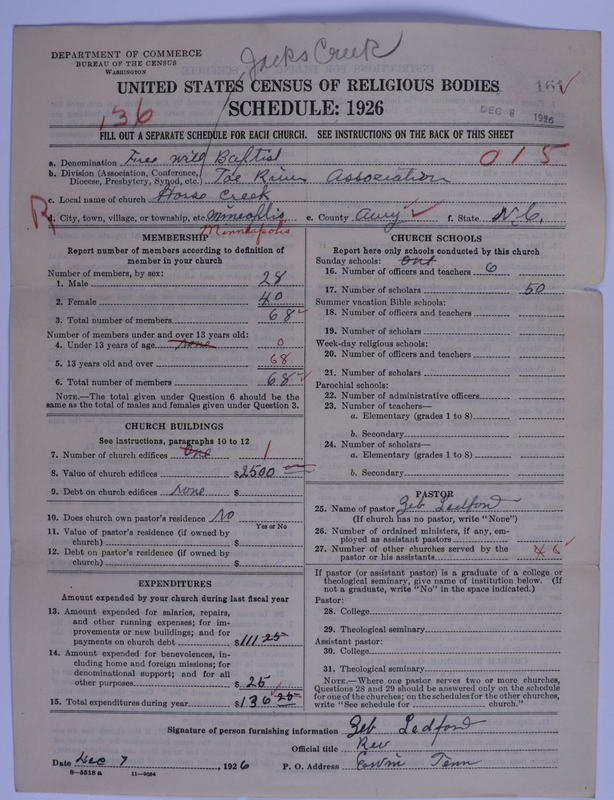 Jacks Creek
DEPARTMENT OF COMMERCE
BUREAU OF THE CENSUS
WASHINGTON
UNITED STATES CENSUS OF RELIGIOUS BODIES
161
SCHEDULE: 1926
DEC 8 1926
136
FILL OUT A SEPARATE SCHEDULE FOR EACH CHURCH. SEE INSTRUCTIONS ON THE BACK OF THIS SHEET
a. Denomination Free will Baptist
015
b. Division (Association, Conference, Diocese, Presbytery, Synod, etc.) Toe River Association
c. Local name of church Horse Creek
R
d. City, town, village, or township, etc. Mineoplis e. County Avry f. State N.C.
Minneapolis
MEMBERSHIP
Report number of members according to definition of
member in your church
Number of members, by sex:
1. Male 28
2. Female 40
3. Total number of members 68
Number of members under and over 13 years old:
4. Under 13 years of age none 0
5. 13 years old and over 68
6. Total number of members 68
NOTE.—The total given under Question 6 should be
same as the total of males and females given under Question 3.
CHURCH BUILDINGS
See instructions, paragraphs 10 to 12
7. Number of church edifices One 1
8. Value of church edifices $2500
9. Debt on church edifices none $
10. Does church own pastor's residence No
Yes or No
11. Value of pastor's residence (if owned by
church) $
12. Debt on pastor's residence (if owned by
church) $
EXPENDITURES
Amount expended by your church during last fiscal year
13. Amount expended for salaries, repairs,
and other running expenses; for im-
provements or new buildings; and for
payments on church debt $111 25
14. Amount expended for benevolences, in-
cluding home and foreign missions; for
denominational support; and for all
other purposes $25
15. Total expenditures during year $136 25
CHURCH SCHOOLS
Report here only schools conducted by this church
Sunday schools:
16. Number of officers and teachers 6
17. Number of scholars 50
Summer vacation Bible schools:
18. Number of officers and teachers
19. Number of scholars
Week-day religious schools:
20. Number of officers and teachers
21. Number of scholars
Parochial schools:
22. Number of administrative officers
23. Number of teachers—
a. Elementary (grades 1 to 8)
b. Secondary
24. Number of scholars—
a. Elementary (grades 1 to 8)
b. Secondary
PASTOR
25. Name of pastor Zeb Ledford
(If church has no pastor, write "None")
26. Number of ordained ministers, if any, em-
ployed as assistant pastors
27. Number of other churches served by the
pastor or his assistants
If pastor (or assistant pastor) is a graduate of a college or
theological seminary, give name of institution below. (If
not a graduate, write "No" in the space indicated.)
Pastor:
28. College
29. Theological seminary
Assistant pastor:
30. College
31. Theological seminary
NOTE.—Where one pastor serves two or more churches,
Questions 28 and 29 should be answered only on the schedule
for one of the churches; on the schedules for the other churches,
write "See schedule for church."
Signature of person furnishing information Zeb Ledford
Official title Rev
Date Dec 7, 1926 P. O. Address Erwin Tenn
8—5518a 11—9084